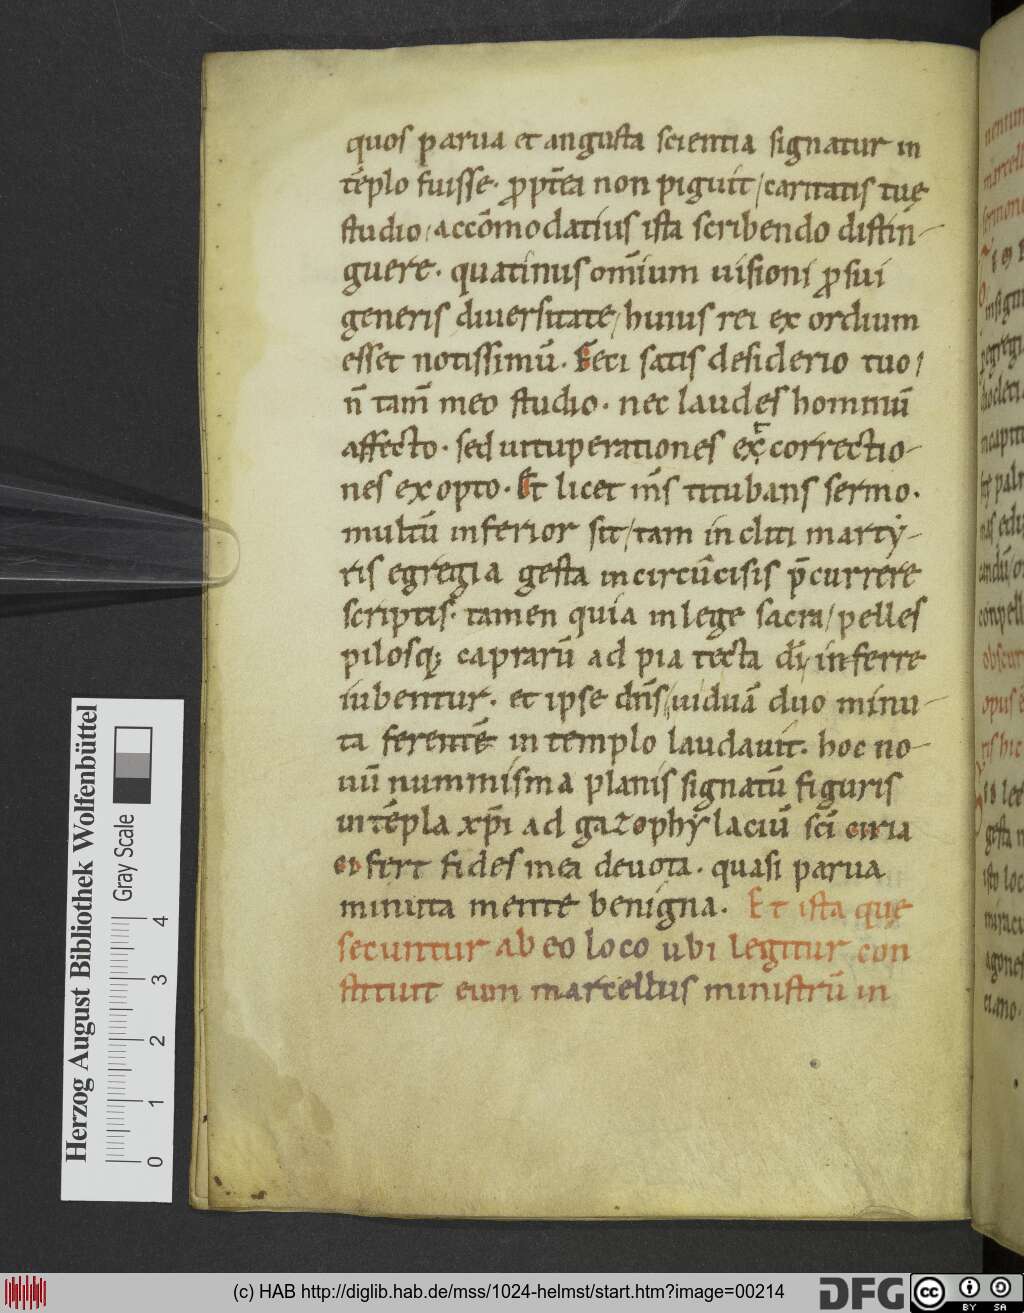 quos parua et angusta scientia signatur in
tēplo fuisse. ꝓpt̄ea non piguit / caritatis tuę
studio / accōmodatius ista scribendo distin-
guere. quatinus om̄ium uisioni ꝓ sui
generis diuersitate / huius rei ex ordium
esset notissimū. Feci satis desiderio tuo /
n̄ tam̄ meo studio. nec laudes hominū
affecto. sed uituperationes et correctio-
nes ex opto. Et licet m̄s titubans sermo.
multū inferior sit / tam incliti marty-
ris egregia gesta in circūcisis p̄currere
scriptis. tamen quia in lege sacra / pelles
pilosq; caprarū ad pia tecta dī / inferre
iubentur. et ipse dn̄s / uiduā duo minu-
ta ferentē in templo laudauit. hoc no-
uū nummisma planis signatū figuris
in tēpla xp̄i ad gazophylaciū sc̄i ciria
ci fert fides mea deuota. quasi parua
minuta mente benigna. Et ista que
secuntur ab eo loco ubi legitur con
stituit eum marcellus ministrū in
Herzog August Bibliothek Wolfenbüttel
Gray Scale
0 1 2 3 4
(c) HAB http://diglib.hab.de/mss/1024-helmst/start.htm?image=00214
DFG
cc BY SA